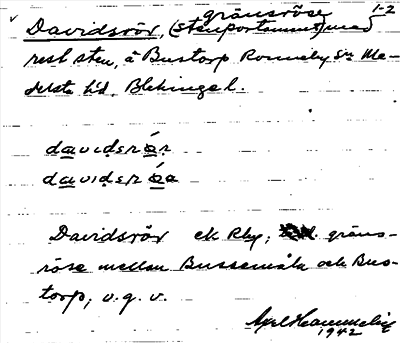 v gränsröse 1-2
Davidsrör, (stenportamus) med
rest sten, å Bustorp Ronneby sn Me-
delsta hd. Blekinge l.
davidsrǿr
davidsrǿa
Davidsrör ek Rby; gräns-
röse mellan Bussemåla och Bus-
torp, v.g.v.
Axel
1942